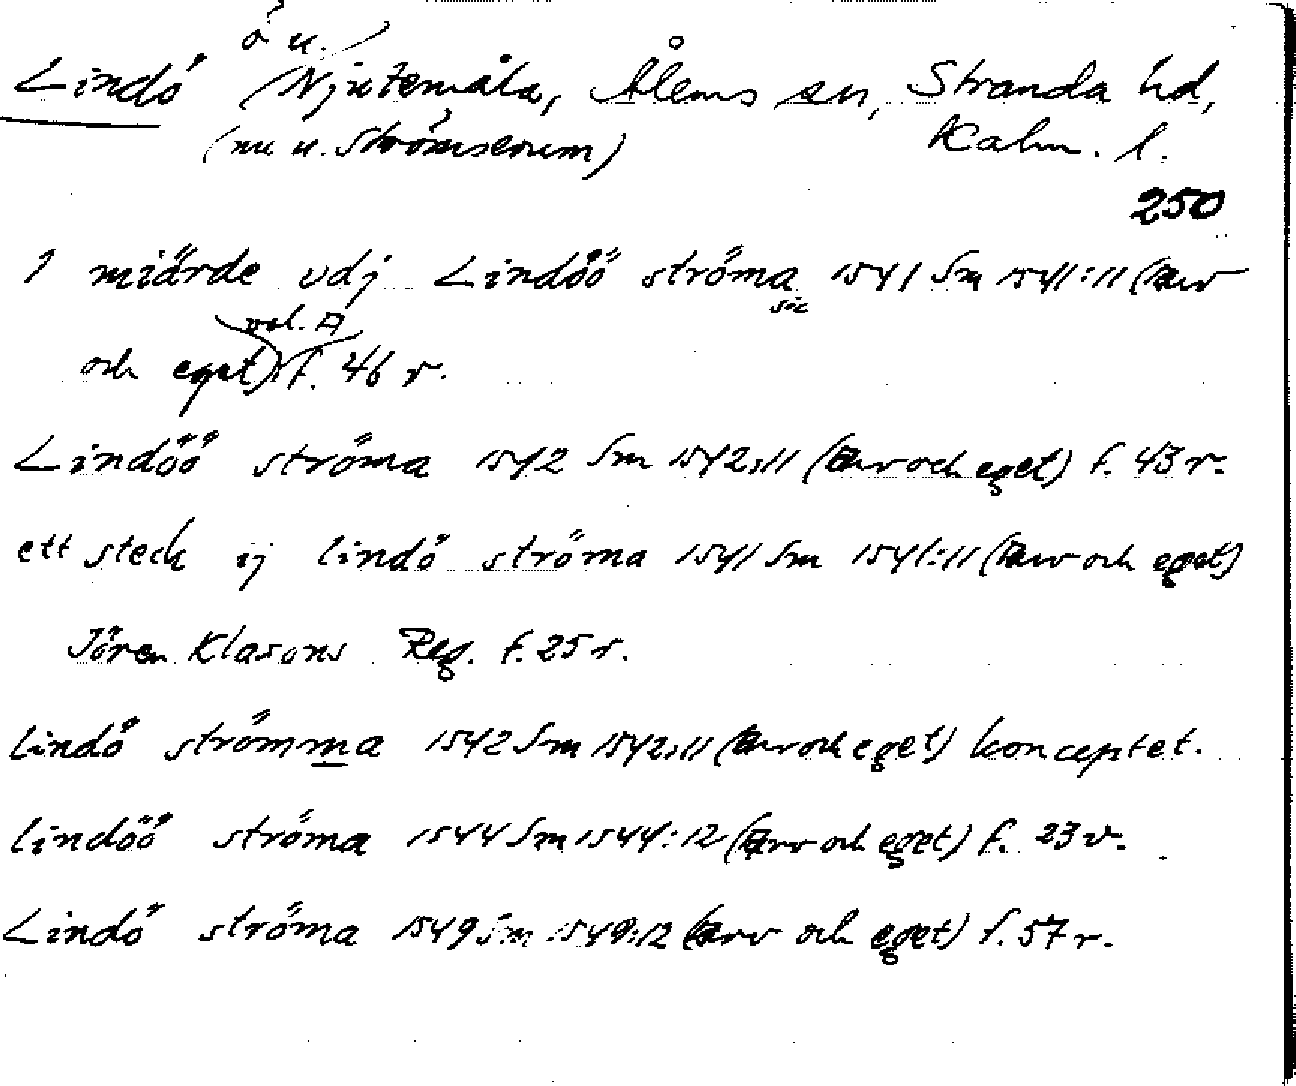 Lindö ö u. Njutemåla, Ålems sn, Stranda hd,
(nu u. Strömserum) Kalm. l.
250
1 miärde vdj Lindöö ströma sic 1541 Sm 1541:11 (Arv
och eget) vol. A f. 46 r.
Lindöö ströma 1542 Sm 1542:11 (Arv och eget) f. 43 r.
ett steck ij lindö ströma 1541 Sm 1541:11 (Arv och eget)
Jören Klasons Reg. f. 25 r.
lindö strömma 1542 Sm 1542:11 (Arv och eget) konceptet.
lindöö ströma 1544 Sm 1544:12 (Arv och eget) f. 23 v.
Lindö ströma 1549 Sm 1549:12 (Arv och eget) f. 57 r.